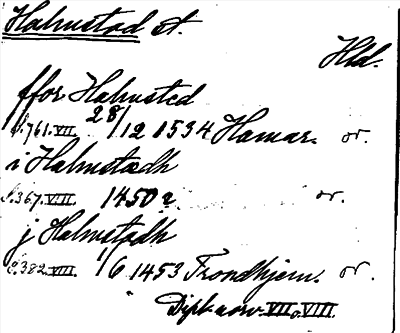 Halmstad st.
Hld.
ffor Halmsted
S.761.VII. 28/12 1534 Hamar. or.
i Halmstædh
S.367.VIII. 1450 c. or.
j Halmstadh
S.382.VIII. 1/6 1453 Trondhjem. or.
Dipl. norv. VII o. VIII.